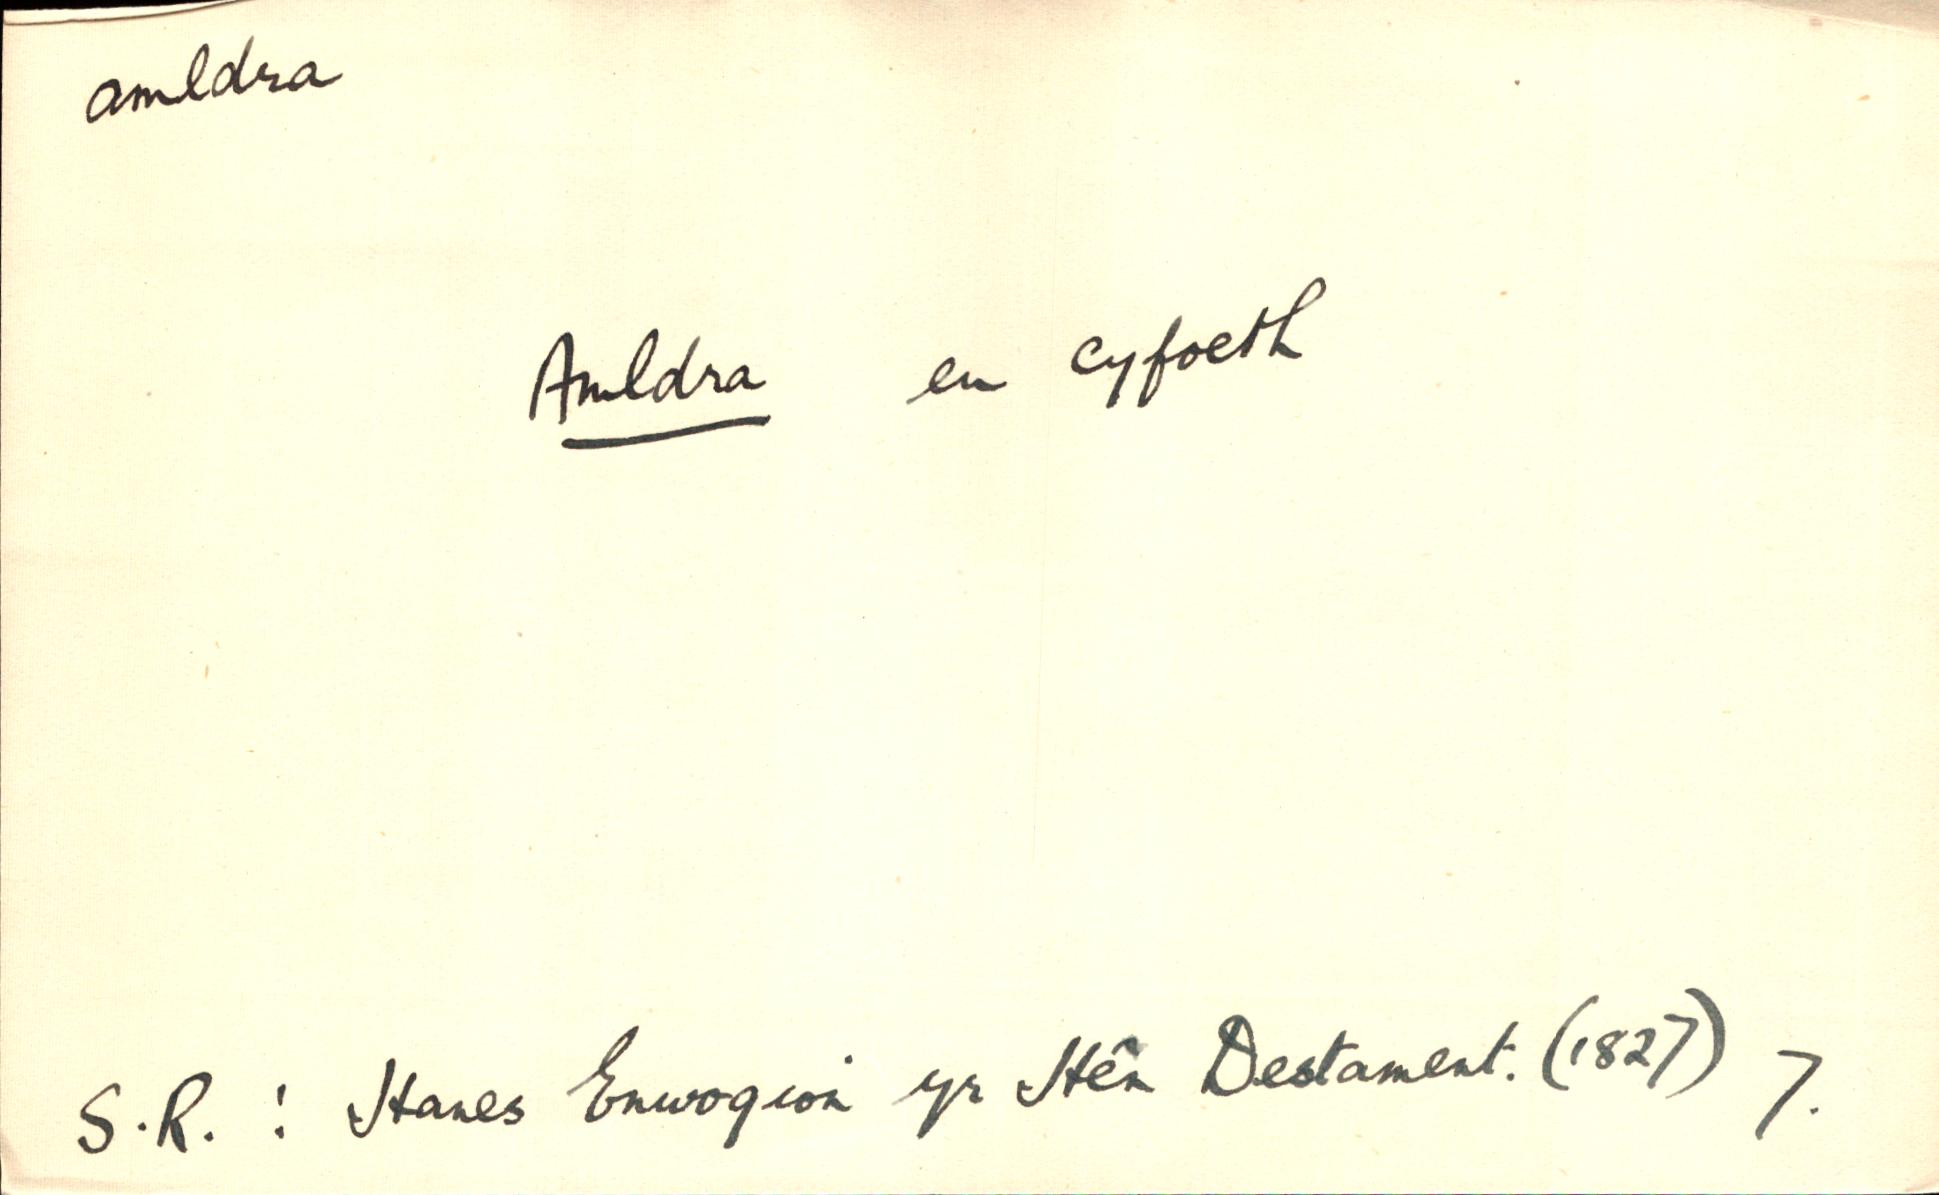 amldra
Amldra en cyfoeth
S.R. : Hanes Enwogion yr Hên Destament. (1827) 7.